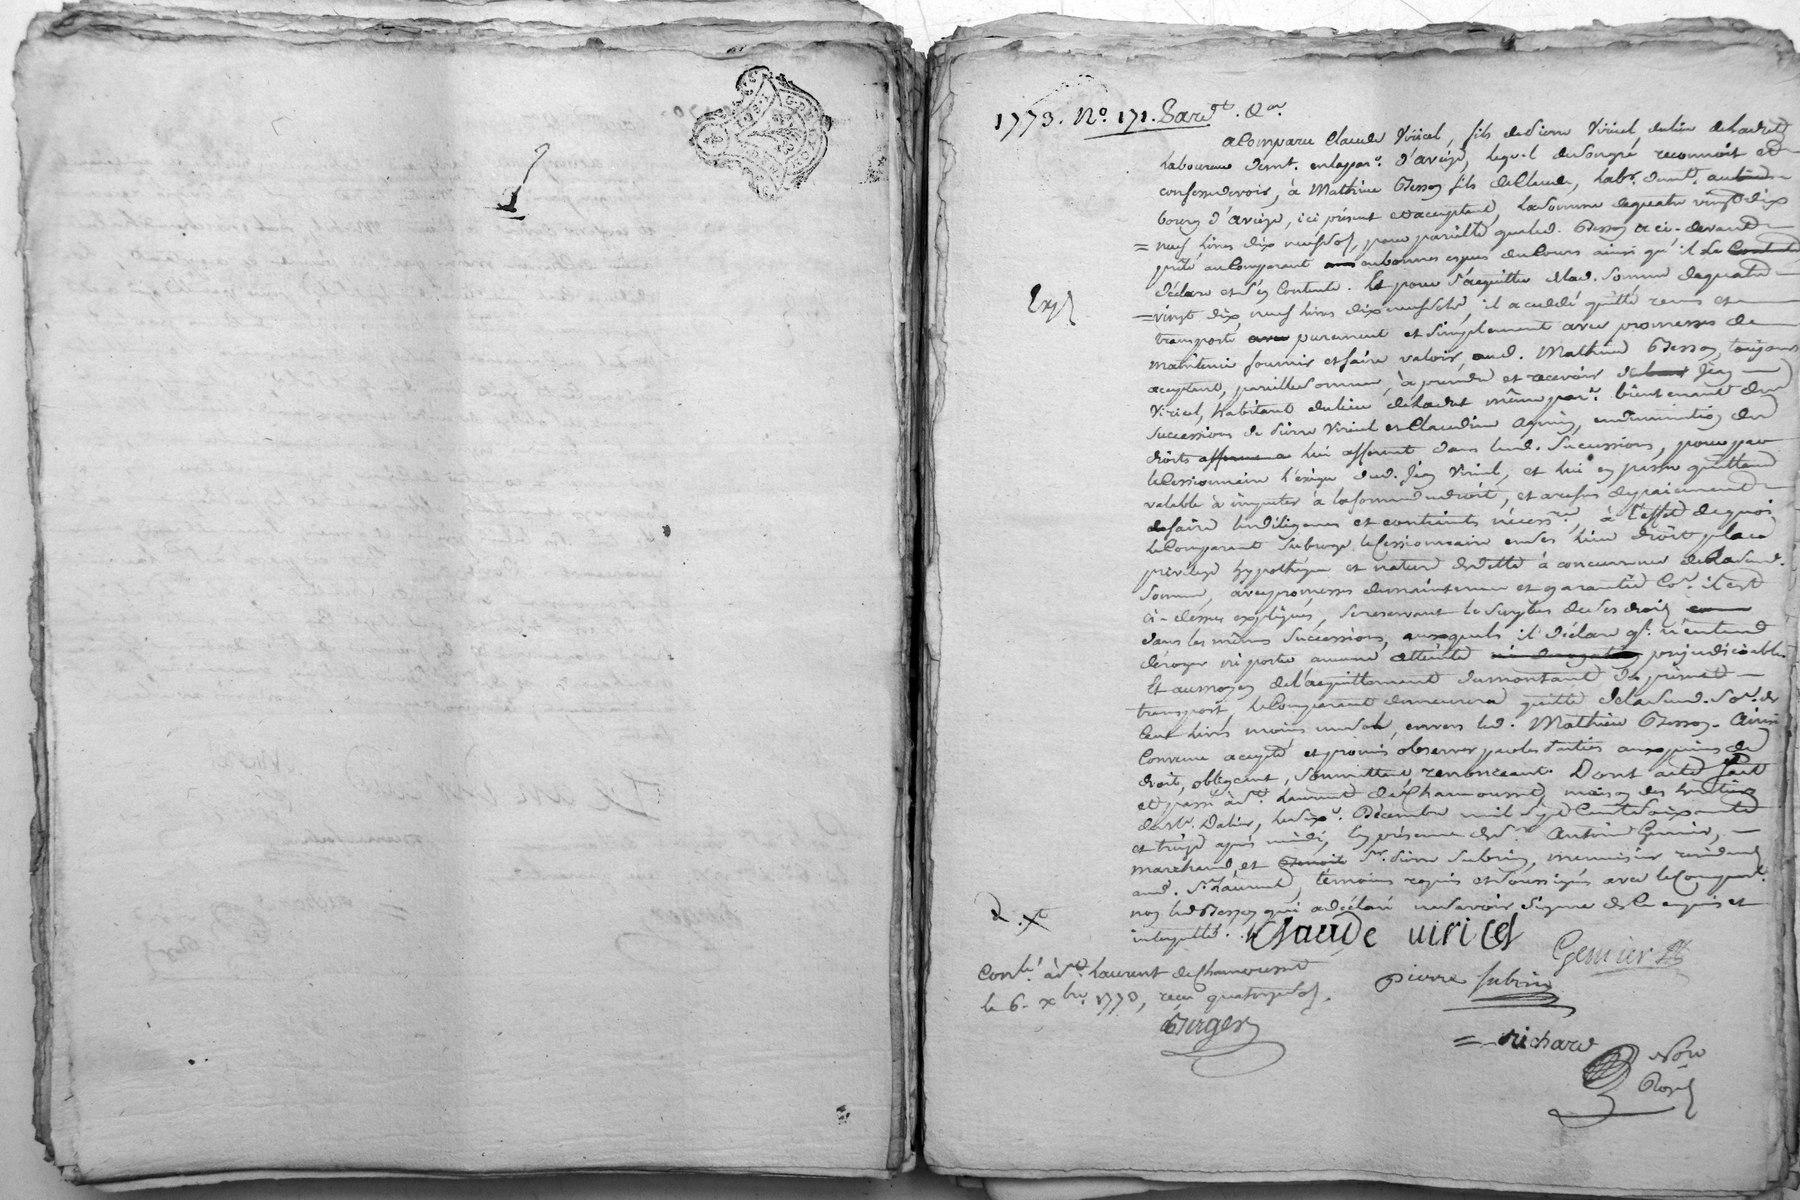 1773. No. 171. Pard.t &.a
a Comparu Claude Viricel, fils de pierre Viricel du lieu de
laboureur demt. en la par.e d'aveize, lequel de son gré reconnoit et
confesse devoir, à Mathieu Besson fils de Claude, labr. demt. au
bourg d'aveize, ici présent et acceptant, la somme de quatre vingt dix
= neuf livres dix neuf sols, pour pareille que led. Besson a ci-devant
prêté au Comparant en bonnes espèces du Cours ainsi qu'il le
déclare et s'en Contente. Et pour s'acquitter de lad. somme de quatre
= vingt dix neuf livres dix neuf sols, il a cédé quitté remis et
transporté purement et simplement avec promesses de
maintenir fournir et faire valoir, aud. Mathieu Besson, toujours
acceptant, pareille somme, à prendre et recevoir de Jean
Viricel, habitant du lieu de même par.e bientenant des
successions de pierre Viricel et Claudine, en diminution des
droits lui afferant dans lesd. successions, pour par
le Cessionnaire l'exiger dud. Jean Viricel, et lui en passer quittance
valable à imputer à la somme du droit, et au refus de paiement
de faire les diligences et contraintes nécess.res, à l'effet de quoi
le Comparant subroge le Cessionnaire en ses lieu droit place
privilege hypotheque et nature de dette à concurrence de lad.
somme, avec promesses de maintenue et garantie Co.e il est
ci-dessus expliqué, se reservant le surplus de ses droits
dans les mêmes successions, auxquels il déclare q.l n'entend
déroger ni porter aucune atteinte prejudiciable.
Et au moyen de l'acquittement du montant du présent
transport, le Comparant demeurera quitte de lad. so.e de
Cent livres moins un sol, envers led. Mathieu Besson. Ainsi
Convenu accepté et promis observer par les parties aux peines de
droit, obligeant, soumettant, renonceant. Dont acte fait
et passé à St. Laurent de Chamousset, maison des
de Sr. Dalier, le six.e Décembre mil sept Cent soixante
et treize après midi, En présence de Sr. Antoine Genier,
marchand, et Sr. pierre Subrin, menuisier residents
aud. St. Laurent, témoins requis et soussignés avec le Comparant.
non led. Besson qui a déclaré ne savoir signer de ce enquis et
interpellé.
Exp.
Claude viricel
Genier
pierre subrin
Conlé. à St. Laurent de Chamousset
le 6. xbre. 1773, reçu quatorze sols.
Berger
= richard
Nore
Royal